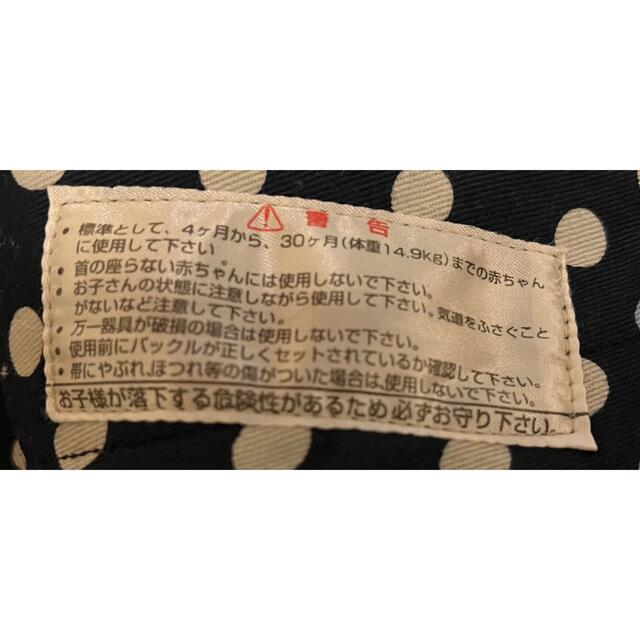 警告
・標準として、4ヶ月から、30ヶ月(体重14.9kg)までの赤ちゃん
に使用して下さい
・首の座らない赤ちゃんには使用しないで下さい。
・お子さんの状態に注意しながら使用して下さい。気道をふさぐこと
がないなど注意して下さい。
・万一器具が破損の場合は使用しないで下さい。
・使用前にバックルが正しくセットされているか確認して下さい。
・帯にやぶれ、ほつれ等の傷がついた場合は、使用しないで下さい。
お子様が落下する危険性があるため必ずお守り下さい。